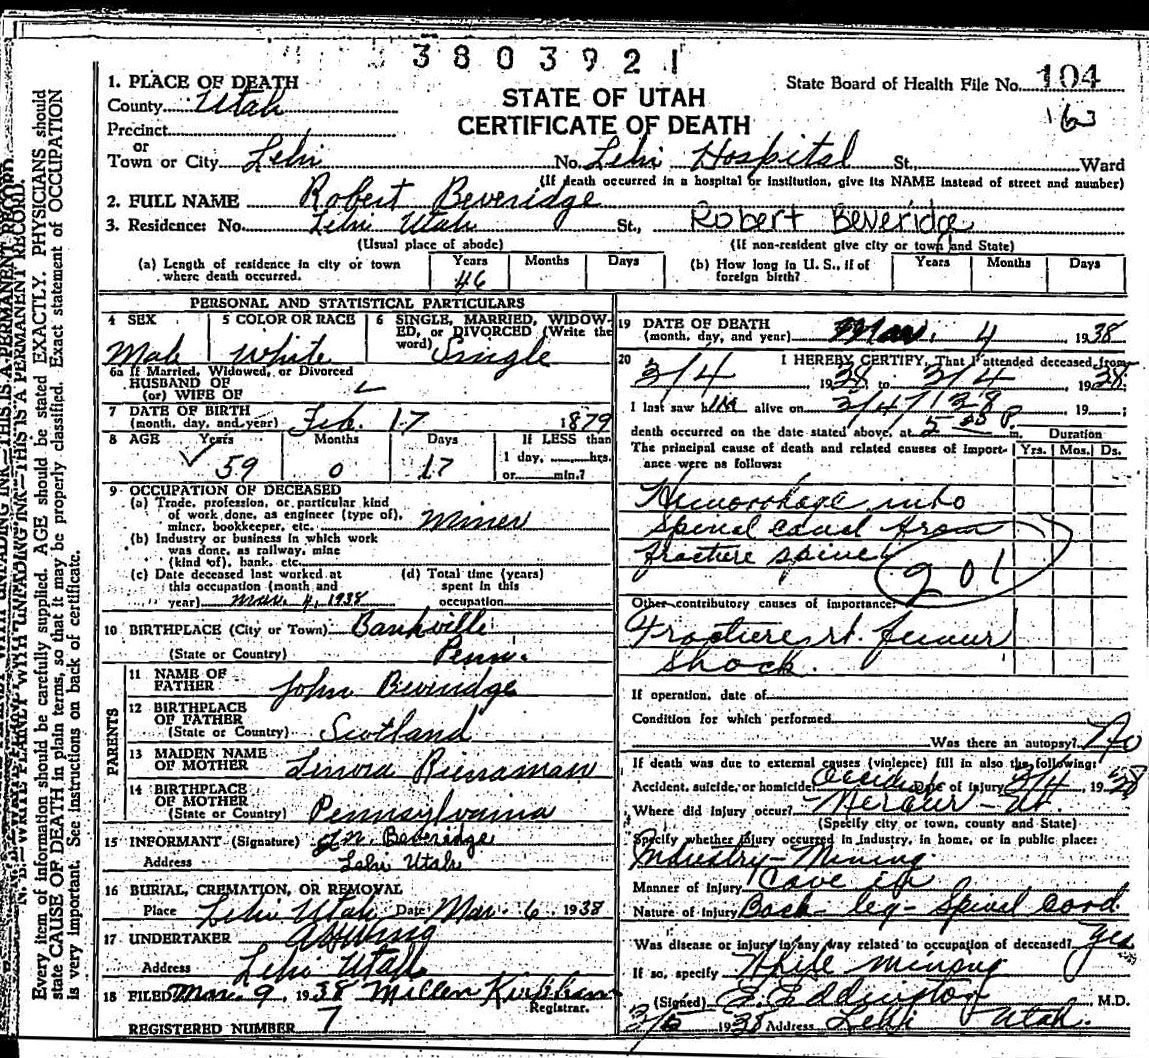 3803921
1. PLACE OF DEATH
County Utah
Precinct
or
Town or City Lehi No. Lehi Hospital St. Ward
STATE OF UTAH
CERTIFICATE OF DEATH
State Board of Health File No. 104
163
(If death occurred in a hospital or institution, give its NAME instead of street and number)
2. FULL NAME Robert Beveridge
3. Residence: No. Lehi Utah St., Robert Beveridge
(Usual place of abode) (If non-resident give city or town and State)
(a) Length of residence in city or town where death occurred. Years 46 Months Days
(b) How long in U. S., if of foreign birth? Years Months Days
PERSONAL AND STATISTICAL PARTICULARS
4 SEX Male
5 COLOR OR RACE White
6 SINGLE, MARRIED, WIDOWED, or DIVORCED (Write the word) Single
6a If Married, Widowed, or Divorced
HUSBAND OF
(or) WIFE OF
7 DATE OF BIRTH
(month, day, and year) Feb. 17 1879
8 AGE Years 59 Months 0 Days 17 If LESS than 1 day, hrs. or min.?
9 OCCUPATION OF DECEASED
(a) Trade, profession, or particular kind
of work done, as engineer (type of),
miner, bookkeeper, etc. Miner
(b) Industry or business in which work
was done, as railway, mine
(kind of), bank, etc.
(c) Date deceased last worked at
this occupation (month and
year) Mar. 4, 1938
(d) Total time (years)
spent in this
occupation
10 BIRTHPLACE (City or Town) Bankville
(State or Country) Penn.
PARENTS
11 NAME OF FATHER John Beveridge
12 BIRTHPLACE OF FATHER
(State or Country) Scotland
13 MAIDEN NAME OF MOTHER Lenora
14 BIRTHPLACE OF MOTHER
(State or Country) Pennsylvania
15 INFORMANT (Signature) Beveridge
Address Lehi Utah
16 BURIAL, CREMATION, OR REMOVAL
Place Lehi Utah Date Mar. 6 1938
17 UNDERTAKER A H Wing
Address Lehi Utah
18 FILED Mar. 9, 1938 Millen Kirkham
Registrar.
REGISTERED NUMBER 7
19 DATE OF DEATH
(month, day, and year) Mar. 4 1938
20 I HEREBY CERTIFY, That I attended deceased from
3/4 1938 to 3/4, 1938;
I last saw him alive on 3/4/38 19 ;
death occurred on the date stated above, at 5 P. m. Duration
The principal cause of death and related causes of importance were as follows: Yrs. Mos. Ds.
Hemorrhage into
spinal canal from
fracture spine
201
Other contributory causes of importance:
Fracture rt. femur
Shock.
If operation, date of
Condition for which performed
Was there an autopsy? No
If death was due to external causes (violence) fill in also the following:
Accident, suicide, or homicide Accident Date of injury 3/4 1938
Where did injury occur? Mercur - Ut.
(Specify city or town, county and State)
Specify whether injury occurred in industry, in home, or in public place:
Industry - Mining
Manner of injury Cave in
Nature of injury Back - leg - Spinal cord
Was disease or injury in any way related to occupation of deceased? yes
If so, specify While mining
(Signed) E. Eddington M.D.
1938 Address Lehi Utah.
N. B.—WRITE PLAINLY WITH UNFADING INK—THIS IS A PERMANENT RECORD.
Every item of information should be carefully supplied. AGE should be stated EXACTLY. PHYSICIANS should
state CAUSE OF DEATH in plain terms, so that it may be properly classified. Exact statement of OCCUPATION
is very important. See instructions on back of certificate.